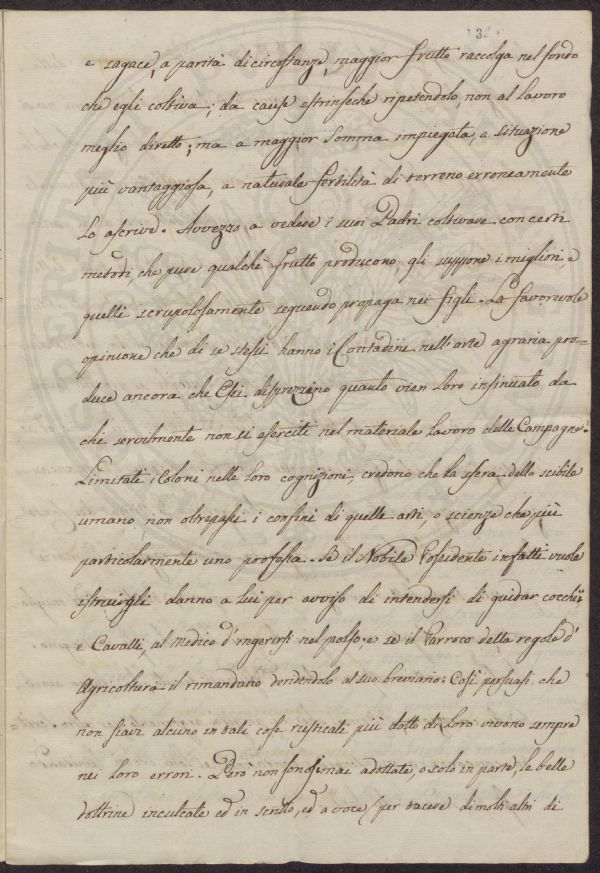 3
e sagace, a parità di circostanze, maggior frutto raccolga nel fondo
che egli coltiva; da cause estrinseche ripetendolo, non al lavoro
meglio diretto; ma a maggior somma impiegata, a situazione
più vantaggiosa, a naturale fertilità di terreno erroneamente
lo ascrive. Avvezzo a vedere i suoi Padri coltivare con certi
metodi, che pure qualche frutto producono, gli suppone i migliori e
quelli scrupolosamente seguendo propaga nei figli. La favorevole
opinione che di se stessi hanno i Contadini nell'arte agraria pro=
duce ancora che Essi disprezzino quanto vien loro insinuato da
chi servilmente non si eserciti nel materiale lavoro delle Campagne.
Limitati i Coloni nelle loro cognizioni, credono che la sfera dello scibile
umano, non oltrepassi i confini di quelle arti, o scienze che più
particolarmente uno professa. Se il Nobile Possidente infatti vuole
istruirgli danno a lui per avviso di intendersi di guidar cocchii
e Cavalli, al Medico d'ingerirsi nel polso, e se il Parroco della regole d'
Agricoltura il rimandano deridendolo al suo breviario: Così persuasi che
non siavi alcuno in tali cose rusticali più dotto di loro vivono sempre
nei loro errori. Però non sono mai adottate, o solo in parte, le belle
dottrine inculcate ed in scritto, ed a voce (per tacere di molti altri di